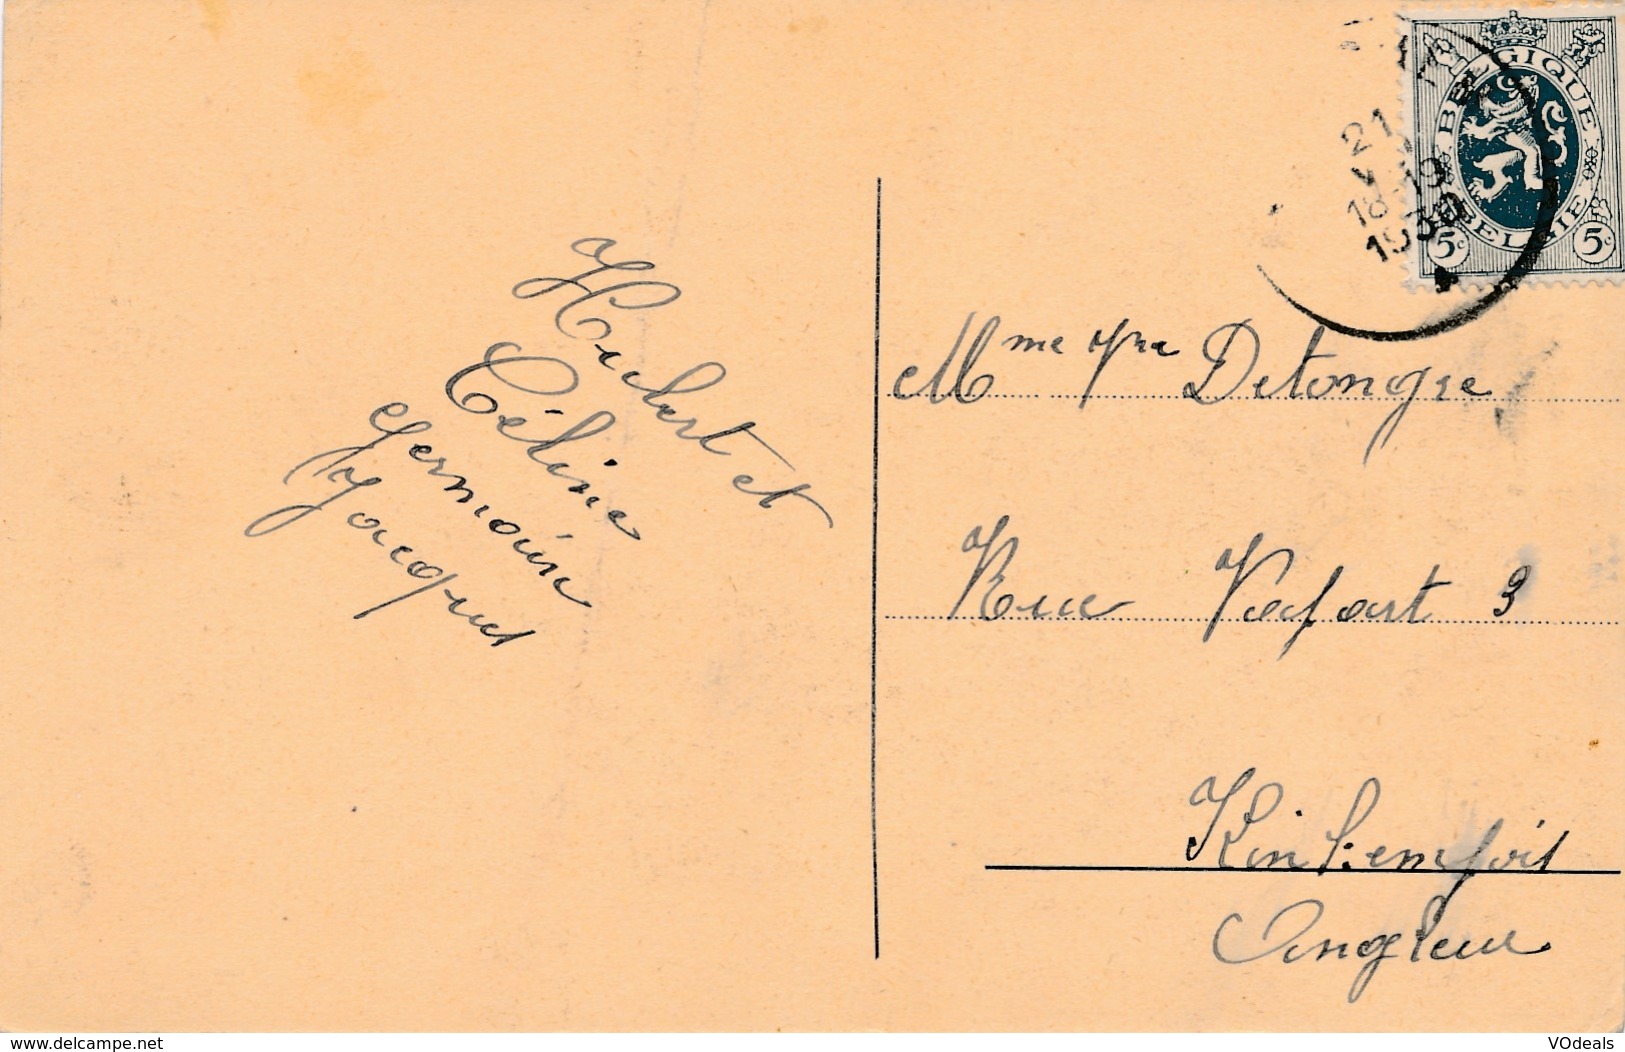 Hubert et
Céline
Germaine
Jacques
BELGIQUE
BELGIE
5c
5c
21
V
18-19
1930
Mme Vve Detongre
Rue 3
Kinkempois
Angleur
www.delcampe.net
VOdeals